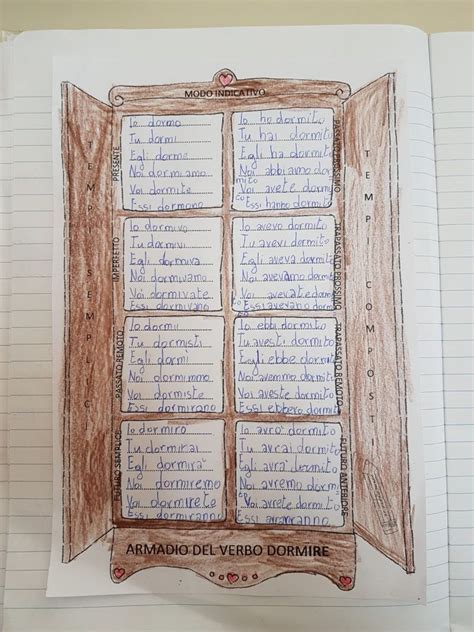 MODO INDICATIVO
TEMPI SEMPLICI
PRESENTE
Io dormo
Tu dormi
Egli dorme
Noi dormiamo
Voi dormite
Essi dormono
PASSATO PROSSIMO
Io ho dormito
Tu hai dormito
Egli ha dormito
Noi abbiamo dormito
Voi avete dormito
Essi hanno dormito
IMPERFETTO
Io dormivo
Tu dormivi
Egli dormiva
Noi dormivamo
Voi dormivate
Essi dormivano
TRAPASSATO PROSSIMO
Io avevo dormito
Tu avevi dormito
Egli aveva dormito
Noi avevamo dormito
Voi avevate dormito
Essi avevano dormito
PASSATO REMOTO
Io dormii
Tu dormisti
Egli dormì
Noi dormimmo
Voi dormiste
Essi dormirono
TRAPASSATO REMOTO
Io ebbi dormito
Tu avesti dormito
Egli ebbe dormito
Noi avemmo dormito
Voi aveste dormito
Essi ebbero dormito
FUTURO SEMPLICE
Io dormirò
Tu dormirai
Egli dormirà
Noi dormiremo
Voi dormirete
Essi dormiranno
FUTURO ANTERIORE
Io avrò dormito
Tu avrai dormito
Egli avrà dormito
Noi avremo dormito
Voi avrete dormito
Essi avranno
TEMPI COMPOSTI
ARMADIO DEL VERBO DORMIRE